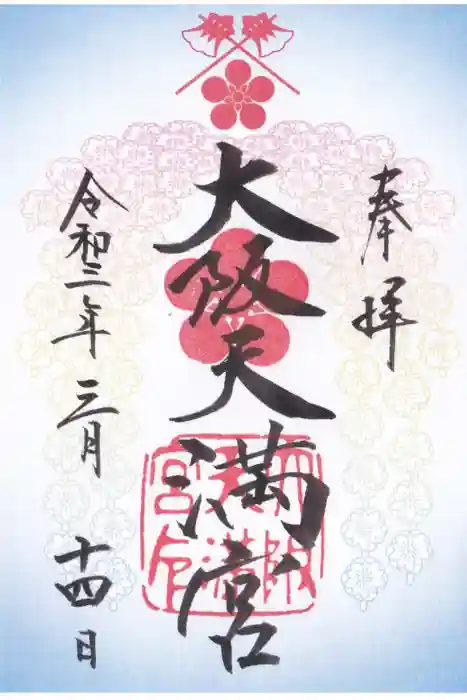 奉拝
大阪天満宮
令和三年三月十四日